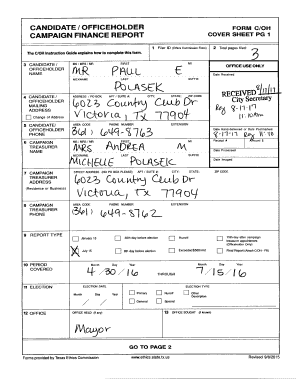 CANDIDATE / OFFICEHOLDER
CAMPAIGN FINANCE REPORT
FORM C/OH
COVER SHEET PG 1
The C/OH Instruction Guide explains how to complete this form.
1 Filer ID (Ethics Commission Filers)
2 Total pages filed:
3
3 CANDIDATE / OFFICEHOLDER NAME
MS / MRS / MR FIRST MI
MR PAUL E
NICKNAME LAST SUFFIX
POLASEK
OFFICE USE ONLY
Date Received
RECEIVED
City Secretary
4 CANDIDATE / OFFICEHOLDER MAILING ADDRESS
Change of Address
ADDRESS / PO BOX; APT / SUITE #; CITY; STATE; ZIP CODE
6023 Country Club Dr
Victoria, TX 77904
5 CANDIDATE / OFFICEHOLDER PHONE
AREA CODE PHONE NUMBER EXTENSION
(361) 649-8763
Date Hand-delivered or Date Postmarked
6 CAMPAIGN TREASURER NAME
MS / MRS / MR FIRST MI
MRS ANDREA M
NICKNAME LAST SUFFIX
MICHELLE POLASEK
Receipt # Amount $
Date Processed
Date Imaged
7 CAMPAIGN TREASURER ADDRESS
(Residence or Business)
STREET ADDRESS (NO PO BOX PLEASE); APT / SUITE #; CITY; STATE; ZIP CODE
6023 Country Club Dr
Victoria, TX 77904
8 CAMPAIGN TREASURER PHONE
AREA CODE PHONE NUMBER EXTENSION
(361) 649-8762
9 REPORT TYPE
January 15
30th day before election
Runoff
15th day after campaign treasurer appointment (Officeholder Only)
July 15
8th day before election
Exceeded $500 limit
Final Report (Attach C/OH - FR)
10 PERIOD COVERED
Month Day Year
4/30/16
THROUGH
Month Day Year
7/15/16
11 ELECTION
ELECTION DATE
Month Day Year
ELECTION TYPE
Primary
Runoff
Other Description
General
Special
12 OFFICE
OFFICE HELD (if any)
Mayor
13 OFFICE SOUGHT (if known)
GO TO PAGE 2
Forms provided by Texas Ethics Commission
www.ethics.state.tx.us
Revised 9/8/2015